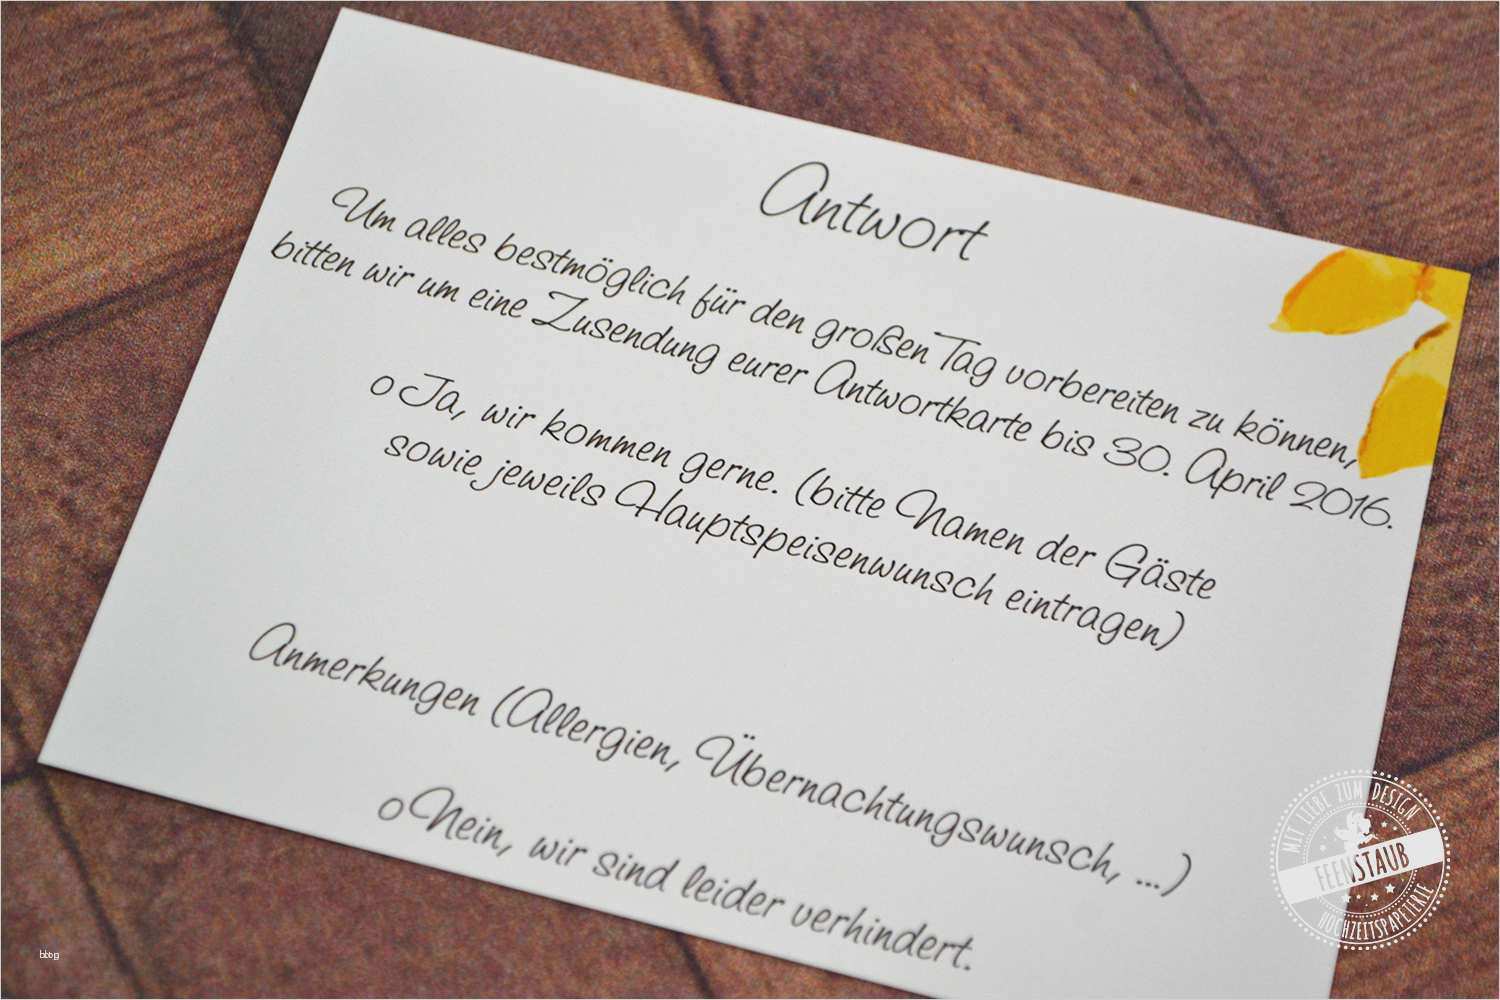 Antwort
Um alles bestmöglich für den großen Tag vorbereiten zu können,
bitten wir um eine Zusendung eurer Antwortkarte bis 30. April 2016.
o Ja, wir kommen gerne. (bitte Namen der Gäste
sowie jeweils Hauptspeisenwunsch eintragen)
Anmerkungen (Allergien, Übernachtungswunsch, ...)
o Nein, wir sind leider verhindert.
MIT LIEBE ZUM DESIGN
FEENSTAUB
HOCHZEITSPAPETERIE